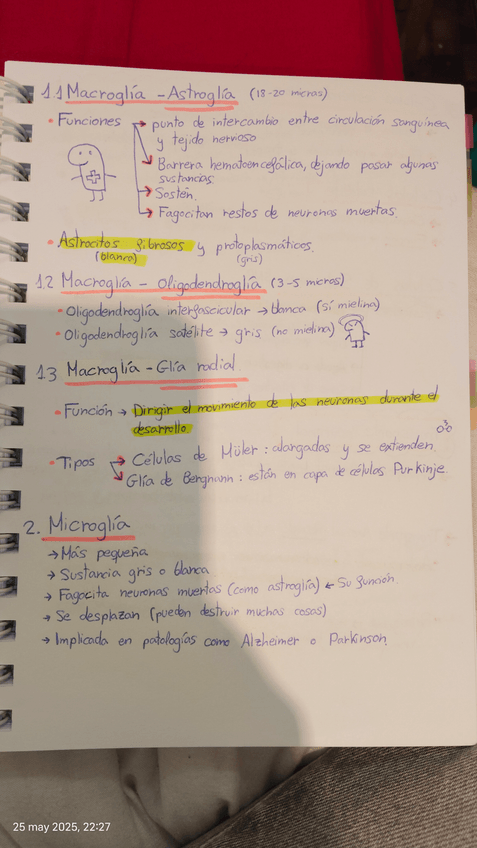 1.1 Macroglía - Astroglía (18-20 micras)
• Funciones → punto de intercambio entre circulación sanguínea
y tejido nervioso
→ Barrera hematoencefálica, dejando pasar algunas
sustancias.
→ Sostén.
→ Fagocitan restos de neuronas muertas.
• Astrocitos fibrosos y protoplasmáticos.
(blanca) (gris)
1.2 Macroglía - Oligodendroglía (3-5 micras)
• Oligodendroglía interfascicular → blanca (sí mielina)
• Oligodendroglía satélite → gris (no mielina)
1.3 Macroglía - Glía radial
• Función → Dirigir el movimiento de las neuronas durante el
desarrollo
• Tipos → Células de Müler: alargadas y se extienden.
→ Glía de Bergmann: están en capa de células Purkinje.
2. Microglía
→ Más pequeña
→ Sustancia gris o blanca
→ Fagocita neuronas muertas (como astroglía) ← Su función.
→ Se desplazan (pueden destruir muchas cosas)
→ Implicada en patologías como Alzheimer o Parkinson.
25 may 2025, 22:27